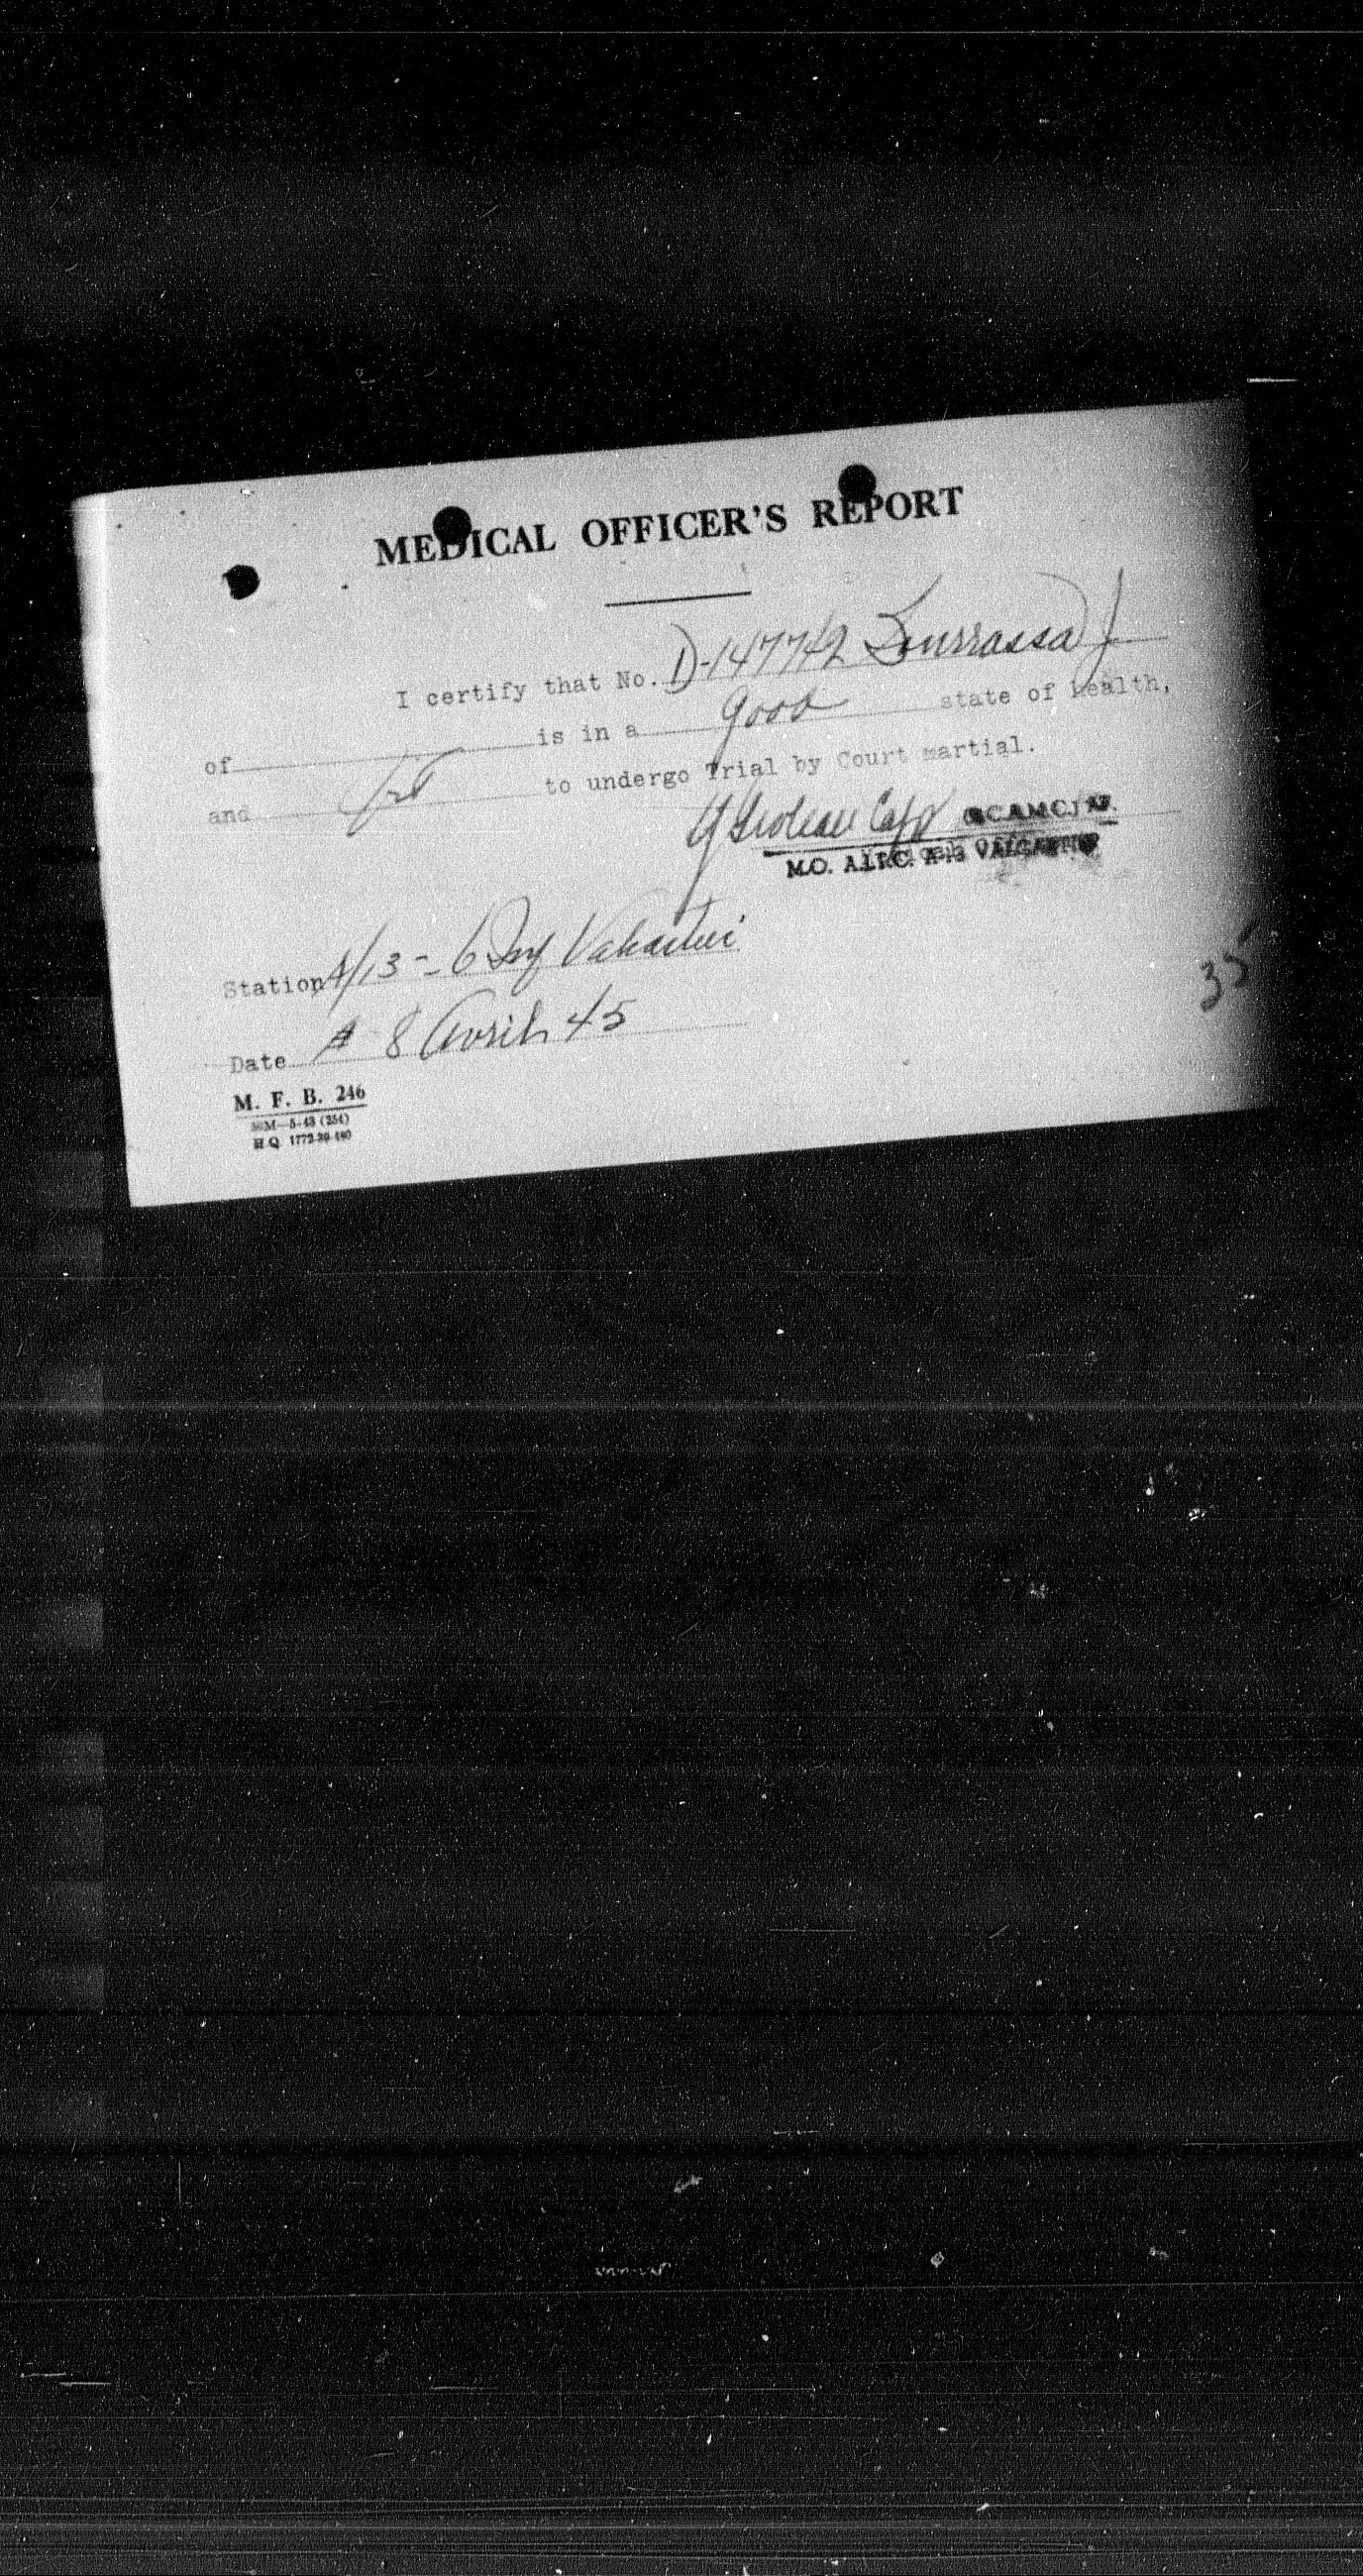 MEDICAL OFFICER'S REPORT
I certify that No. D-147742 Bourrassa J
of is in a good state of health,
and fit to undergo Trial by Court martial.
Capt R.C.A.M.C.
M.O. VALCARTIER
Station A/13 - 6 Inf Valcartier
Date 8 Avril 45
M. F. B. 246
50M—5-43 (254)
H Q 1772-39-490
35